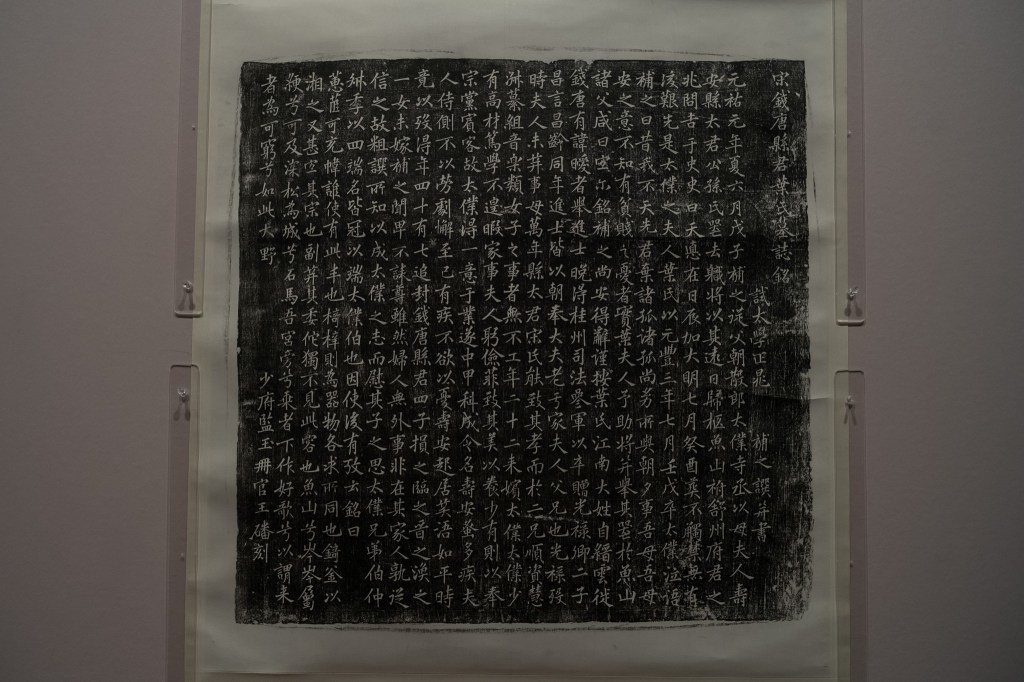 宋錢唐縣君葉氏墓誌銘
試太學正晁 補之譔并書
元祐元年夏六月戊子補之從父朝散郎太僕寺丞以母夫人壽
安縣太君公孫氏喪去職將以其遠日歸柩魚山祔州府君之
兆問吉于史史曰天德在日辰加大明七月癸酉奠不觸無有
後艱先是太僕之夫人葉氏以元豐三年七月壬戌卒太僕泣語
補之曰昔我不天先君棄諸孤諸孤尚幼所與朝夕事吾母吾母
安之意不知有貧賤之憂者實葉夫人予助將并舉其喪於魚山
諸父咸曰宜尔銘補之尚安得辭謹按葉氏江南大姓自縉雲徙
錢唐有諱曖者舉進士晚得桂州司法參軍以卒贈光祿卿二子
昌言昌齡同年進士皆以朝奉大夫老于家夫人父兄也光祿歿
時夫人未笄事母萬年縣太君宋氏能致其孝而於二兄順資慧
淋纂組音樂類女子之事者無不工年二十二来嬪太僕太僕少
有高材篤學不遑暇家事夫人躬儉菲致其美以養少有則以奉
宗黨賓客故太僕得一意于業遂中甲科成令名壽安蚤多疾夫
人侍側不以勞劇懈至已有疾不欲以憂壽安起居笑語如平時
竟以歿得年四十有七追封錢唐縣君四子損之臨之音之渙之
一女未嫁補之聞卑不誄尊雖然婦人無外事非在其家人孰從
信之故粗譔所知以成太僕之志而慰其子之思太僕兄弟伯仲
季以四端名皆冠以端太僕伯也因使後有攷云銘曰
蕙茝可充幃誰使有此丰也椅梓則為器物各求所同也錡釜以
湘之又甚宜其宗也副笄其委佗獨不見此容也魚山兮岑岑屬
兮可及深松為城兮石馬吾宮旁兮乘者下作好歌兮以謂来
者為可窮兮如此大野
少府監玉冊官王磻刻